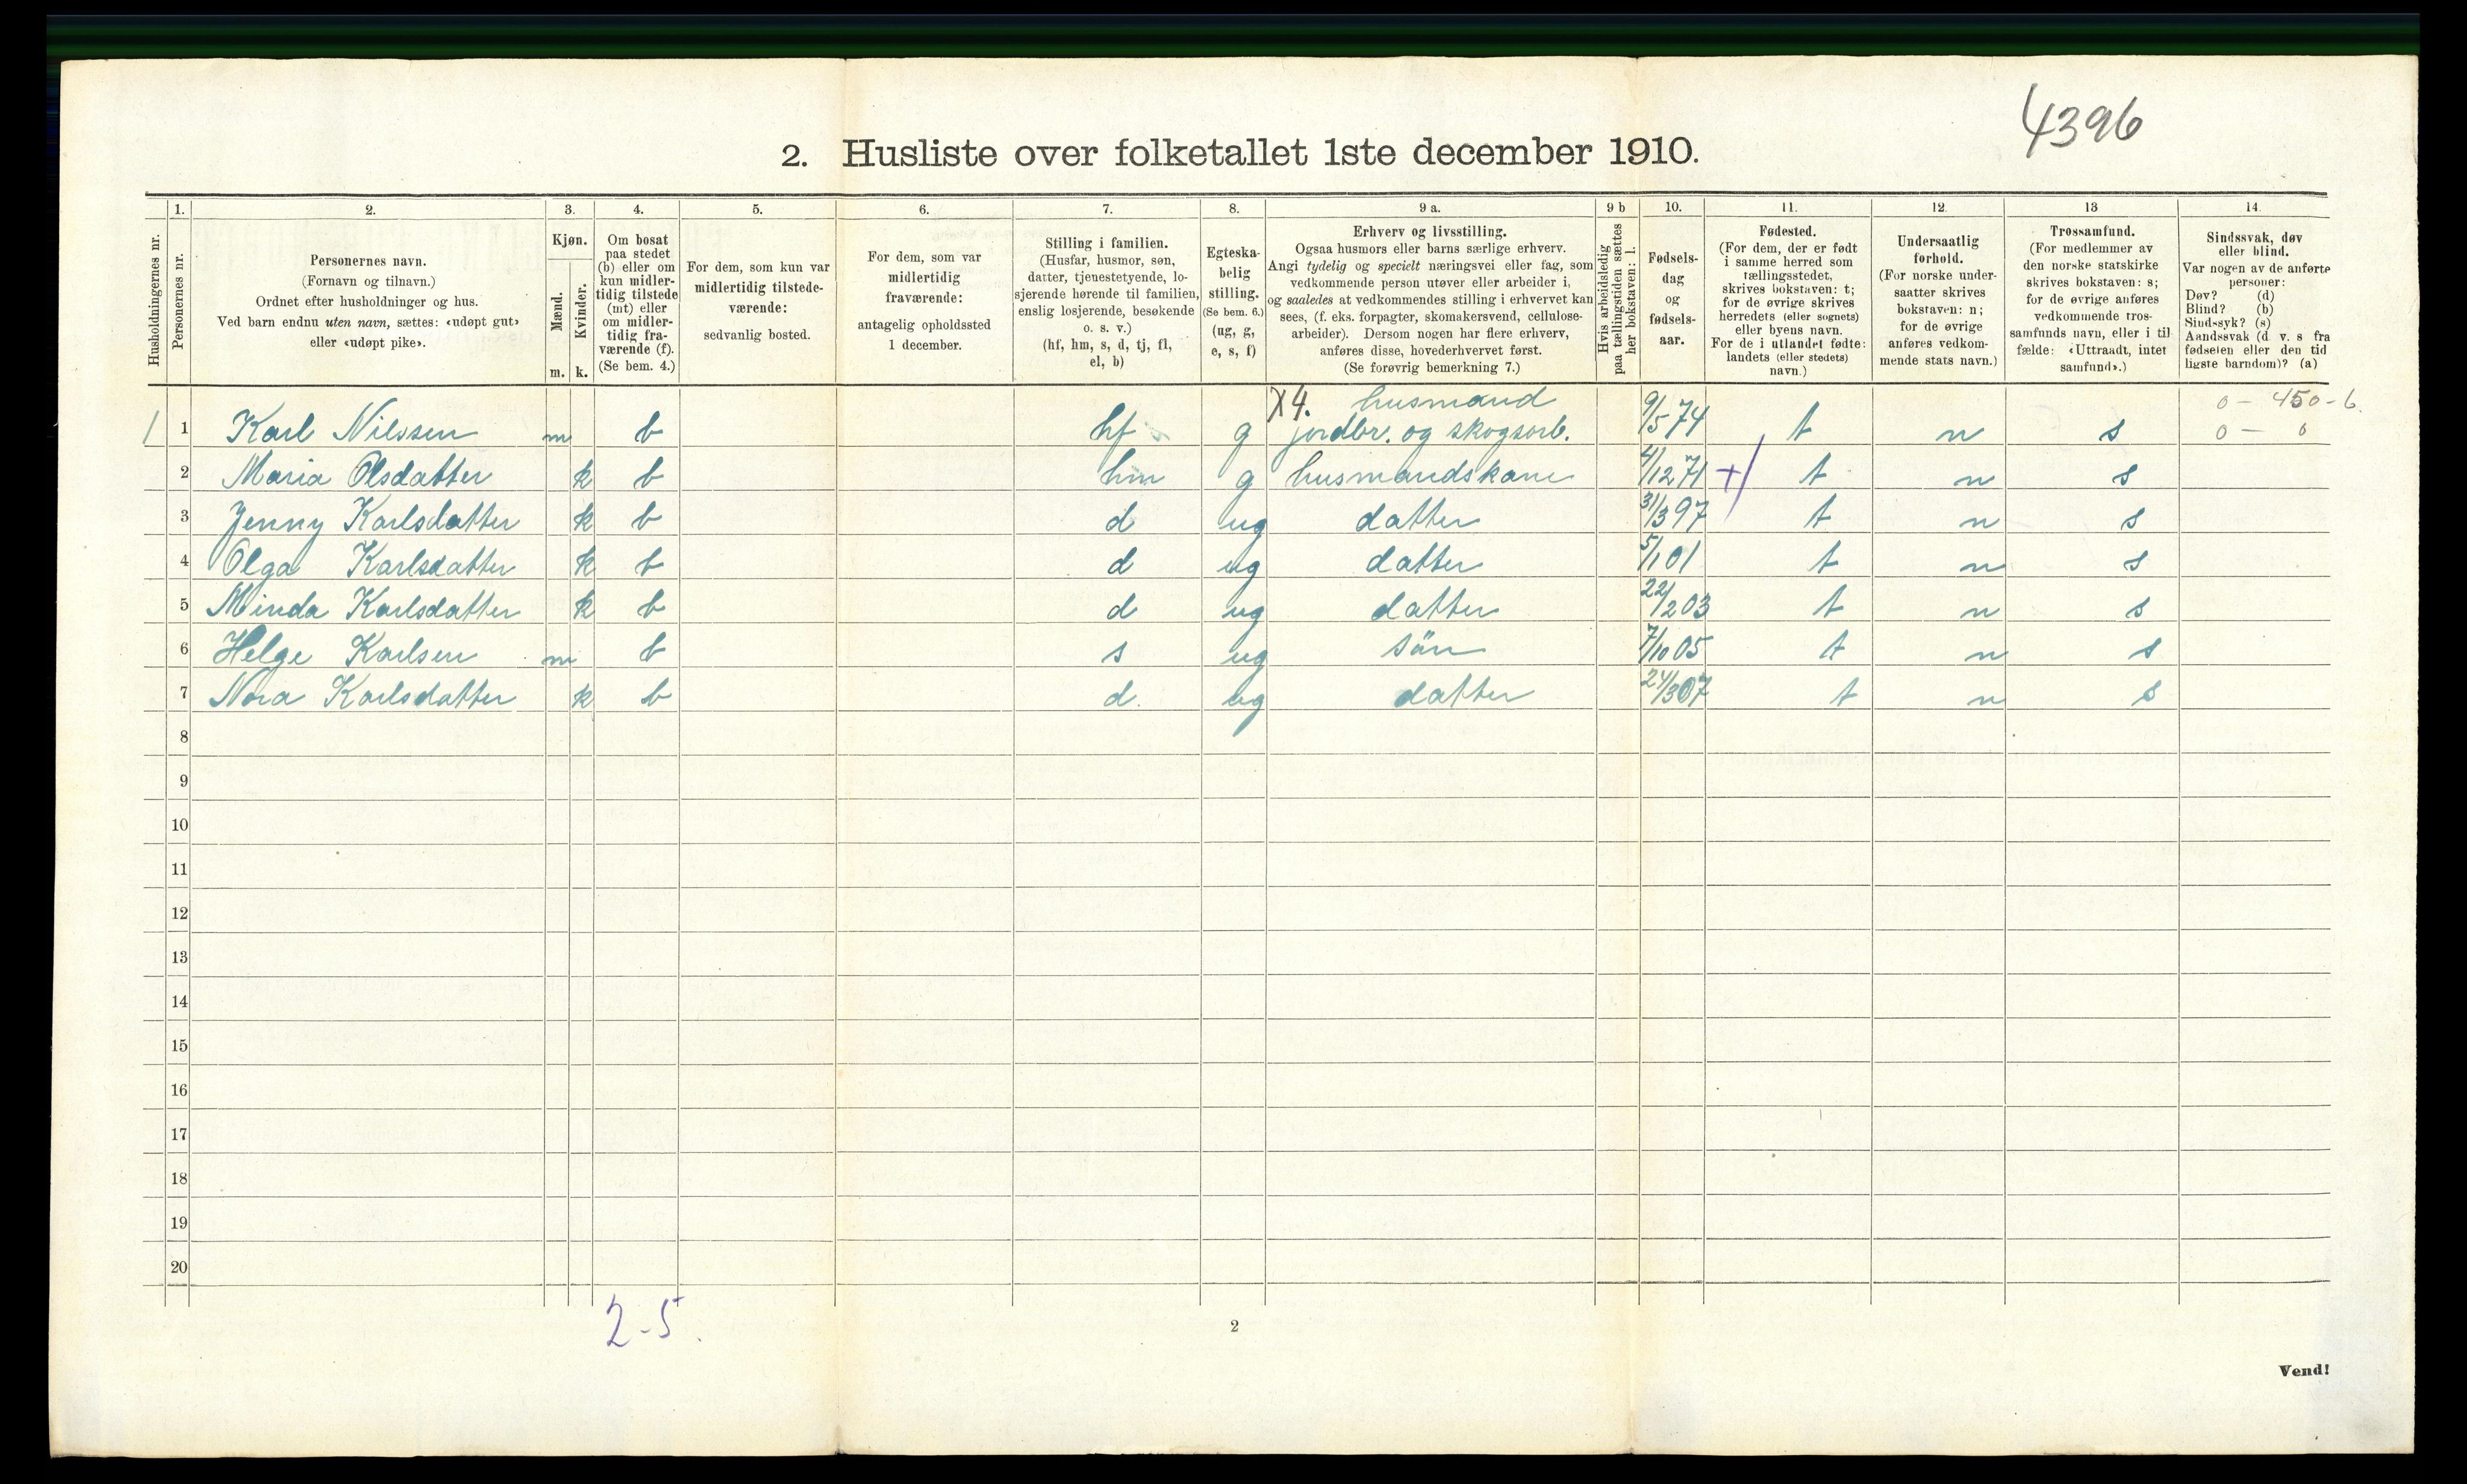 4396
2. Husliste over folketallet 1ste december 1910.
Husholdningernes nr.
1.
Personernes nr.
2.
Personernes navn.
(Fornavn og tilnavn.)
Ordnet efter husholdninger og hus.
Ved barn endnu uten navn, sættes: «udøpt gut»
eller «udøpt pike».
3.
Kjøn.
Mænd.
m.
Kvinder.
k.
4.
Om bosat
paa stedet
(b) eller om
kun midler-
tidig tilstede
(mt) eller
om midler-
tidig fra-
værende (f).
(Se bem. 4.)
5.
For dem, som kun var
midlertidig tilstede-
værende:
sedvanlig bosted.
6.
For dem, som var
midlertidig
fraværende:
antagelig opholdssted
1 december.
7.
Stilling i familien.
(Husfar, husmor, søn,
datter, tjenestetyende, lo-
sjerende hørende til familien,
enslig losjerende, besøkende
o. s. v.)
(hf, hm, s, d, tj, fl,
el, b)
8.
Egteska-
belig
stilling.
(Se bem. 6.)
(ug, g,
e, s, f)
9 a.
Erhverv og livsstilling.
Ogsaa husmors eller barns særlige erhverv.
Angi tydelig og specielt næringsvei eller fag, som
vedkommende person utøver eller arbeider i,
og saaledes at vedkommendes stilling i erhvervet kan
sees, (f. eks. forpagter, skomakersvend, cellulose-
arbeider). Dersom nogen har flere erhverv,
anføres disse, hovederhvervet først.
(Se forøvrig bemerkning 7.)
9 b
Hvis arbeidsledig
paa tællingstiden sættes
her bokstaven: l.
10.
Fødsels-
dag
og
fødsels-
aar.
11.
Fødested.
(For dem, der er født
i samme herred som
tællingsstedet,
skrives bokstaven: t;
for de øvrige skrives
herredets (eller sognets)
eller byens navn.
For de i utlandet fødte:
landets (eller stedets)
navn.)
12.
Undersaatlig
forhold.
(For norske under-
saatter skrives
bokstaven: n;
for de øvrige
anføres vedkom-
mende stats navn.)
13
Trossamfund.
(For medlemmer av
den norske statskirke
skrives bokstaven: s;
for de øvrige anføres
vedkommende tros-
samfunds navn, eller i til
fælde: «Uttraadt, intet
samfund».)
14.
Sindssvak, døv
eller blind.
Var nogen av de anførte
personer:
Døv? (d)
Blind? (b)
Sindssyk? (s)
Aandssvak (d. v. s fra
fødselen eller den tid
ligste barndom)? (a)
X4. husmand 0 - 450 - 6.
1 1 Karl Nilssen m b hf g jordbr. og skogsarb. 9/5 74 t n s 0 - 0
2 Maria Olsdatter k b hm g husmandskone 4/12 71 + t n s
3 Jenny Karlsdatter k b d ug datter 31/3 97 t n s
4 Olga Karlsdatter k b d ug datter 5/1 01 t n s
5 Minda Karlsdatter k b d ug datter 22/2 03 t n s
6 Helge Karlsen m b s ug sön 7/10 05 t n s
7 Nora Karlsdatter k b d. ug datter 24/3 07 t n s
8
9
10
11
12
13
14
15
16
17
18
19
20
2-5.
2
Vend!